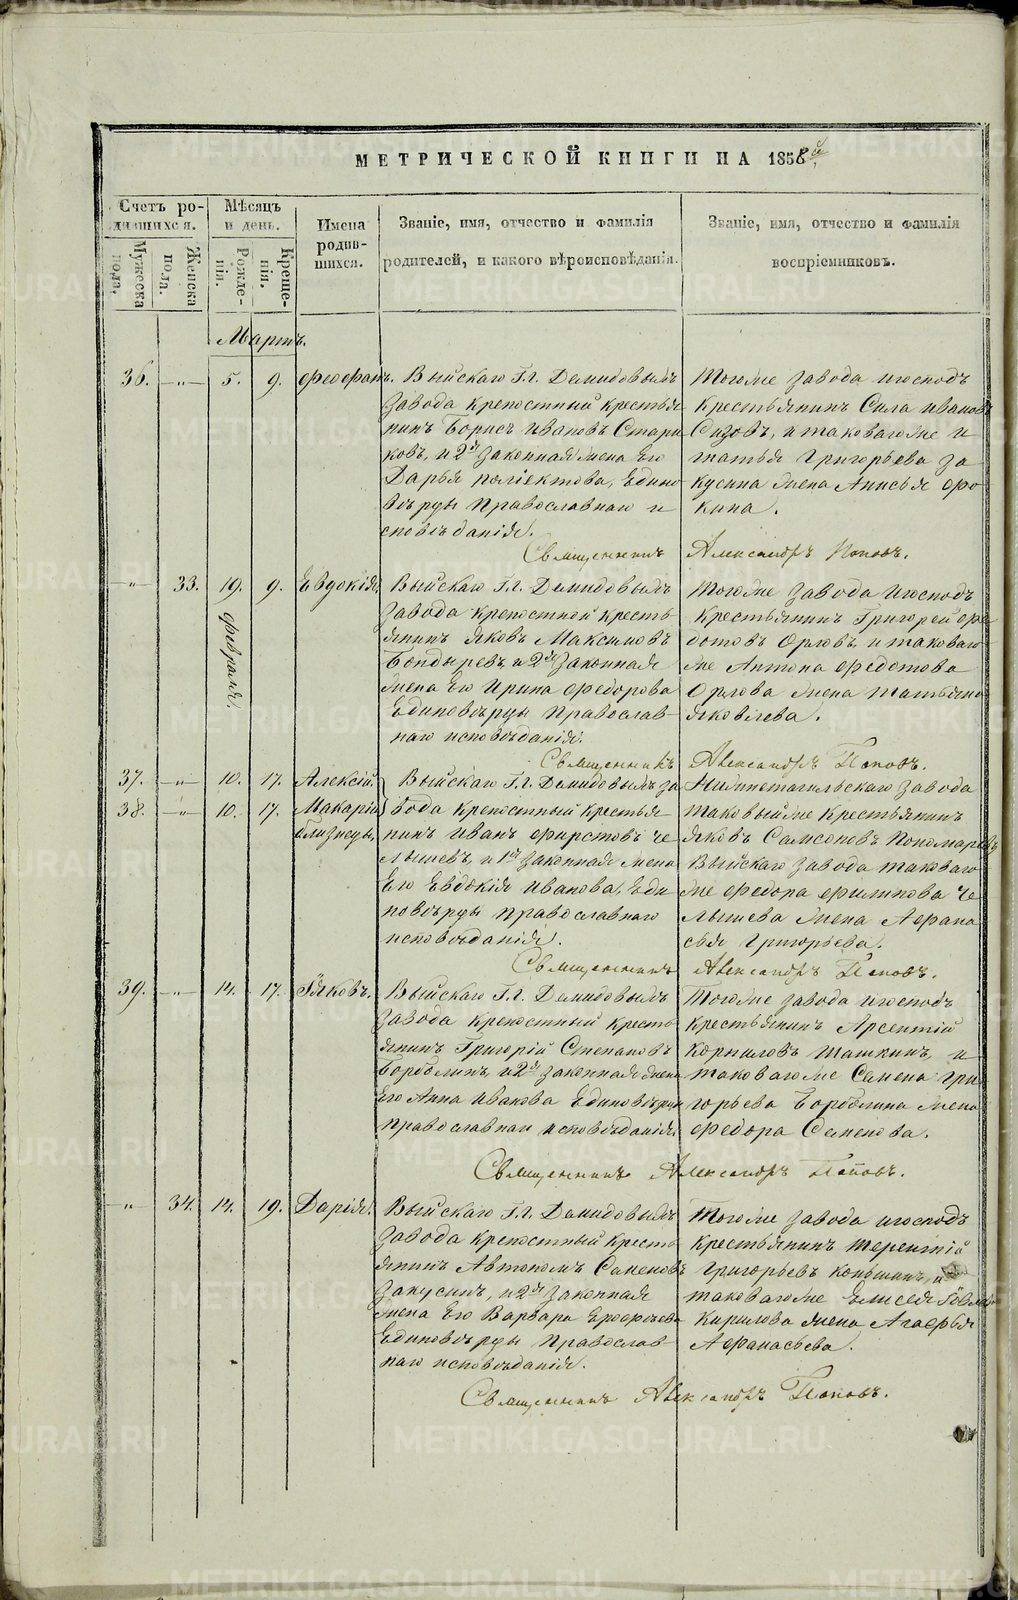 МЕТРИЧЕСКОЙ КНИГИ НА 1858й
Счетъ ро-
дившихся.
Мѣсяцъ
и день.
Имена
родив-
шихся.
Званіе, имя, отчество и фамилія
родителей, и какого вѣроисповѣданія.
Званіе, имя, отчество и фамилія
воспріемниковъ.
Мужеска
пола.
Женска
пола.
Рожде-
нія.
Креще-
нія.
Мартъ.
36. —„— 5. 9. Феофанъ.
Выйскаго Гг. Демидовымъ
завода крепостный крестья
нинъ Борисъ Ивановъ Стари
ковъ, и 2й законная жена Его
Дарья Поліектова, Едино
вѣрцы Православнаго и
сповѣданія.
Тогоже завода игосподъ
крестьянинъ Сила Ивановъ
Сизовъ, и таковагоже И
гнатья Григорьева За
кусина жена Анисья Фо
кина.
Священникъ Александръ Поповъ.
„ 33. 19. 9. Евдокія.
февраля.
Выйскаго Гг. Демидовымъ
завода крепостной кресть
янинъ Яковъ Максимовъ
Бондыревъ, и 2я законная
жена Его Ирина Федорова
Единовѣрцы Православ-
наго исповѣданія.
Тогоже завода игосподъ
крестьянинъ Григорей Фе
дотовъ Орловъ, и таковаго
же Антона Федотова
Орлова жена Татьяна
Яковлева.
Священникъ Александръ Поповъ.
37. —„— 10. 17. Алексій.
38. —„— 10. 17. Макарій
близнецы,
Выйскаго Гг. Демидовымъ за
вода крепостный крестья
нинъ Иванъ Фирстовъ Че
лышевъ, и 1й законная жена
Его Евдокія Иванова, Еди
новѣрцы православнаго
исповѣданія.
Нижнетагильскаго завода
таковыйже крестьянинъ
Яковъ Самсоновъ Пономаревъ
Выйскаго завода таковаго
же Федора Филипова Че
лышева жена Афана
сья Григорьева.
Священникъ Александръ Поповъ.
39. —„— 14. 17. Іяковъ.
Выйскаго Гг. Демидовымъ
завода крепостный кресть
янинъ Григорій Степановъ
Бороблинъ, и 2й законная жена
Его Анна Иванова Единовѣрцы
православнаго исповѣданія.
Тогоже завода игосподъ
крестьянинъ Арсентій
Корниловъ Ташкинъ, и
таковагоже Семена Гри
горьева Бороблина жена
Федора Семенова.
Священникъ Александръ Поповъ.
„ 34. 14. 19. Дарія.
Выйскаго Гг. Демидовымъ
завода крепостный кресть
янинъ Автономъ Семеновъ
Закусинъ, и 2я законная
жена Его Варвара Ерофеева
Единовѣрцы Православ
наго исповѣданія.
Тогоже завода игосподъ
крестьянинъ Терентій
Григорьевъ Коньшинъ, и
таковагоже Елисея
Кирилова жена Агафья
Афанасьева.
Священникъ Александръ Поповъ.
METRIKI.GASO-URAL.RU